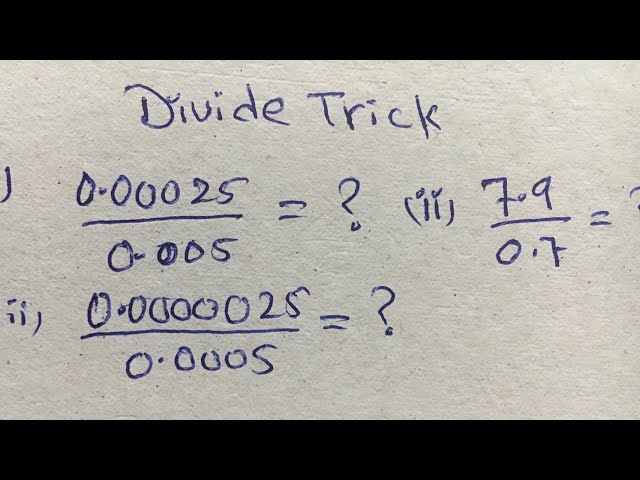 Divide Trick
) 0.00025 / 0.005 = ? (ii) 7.9 / 0.7 = ?
ii) 0.0000025 / 0.0005 = ?